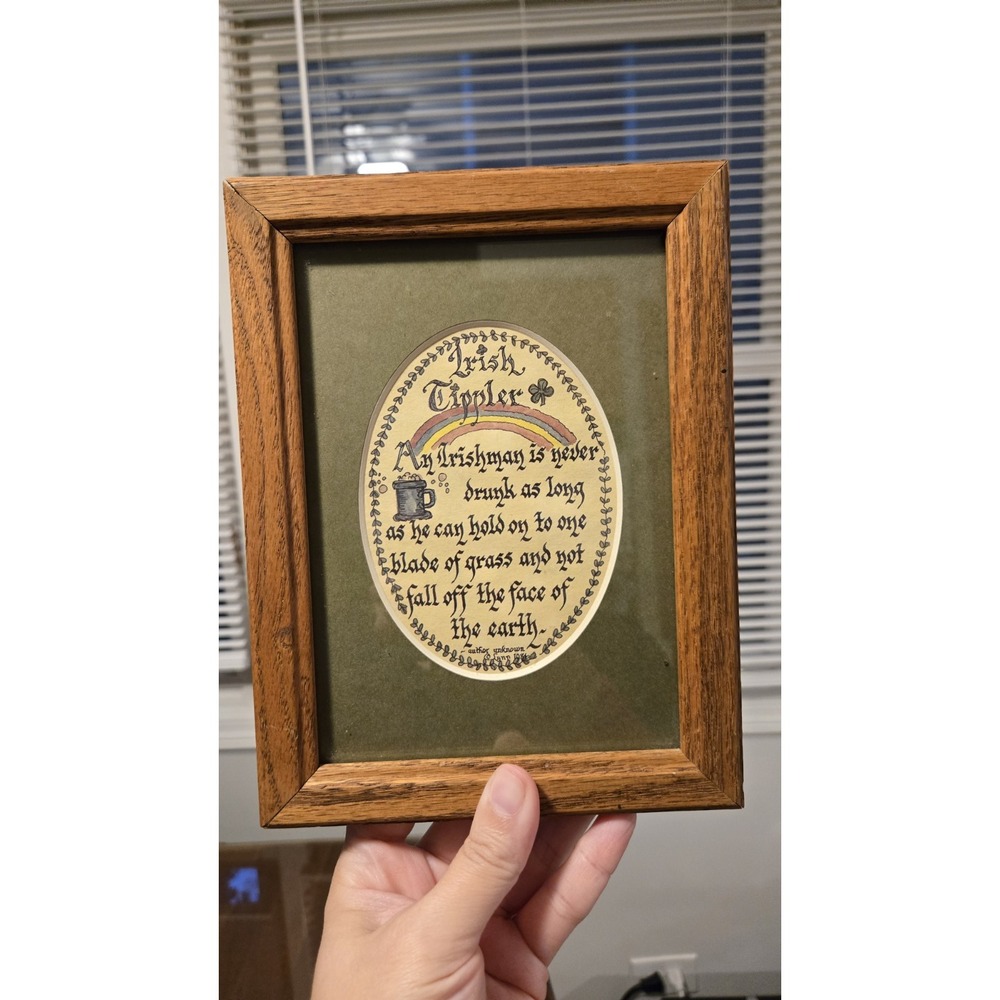 Irish
Tippler
An Irishman is never
drunk as long
as he can hold on to one
blade of grass and not
fall off the face of
the earth.
- author unknown